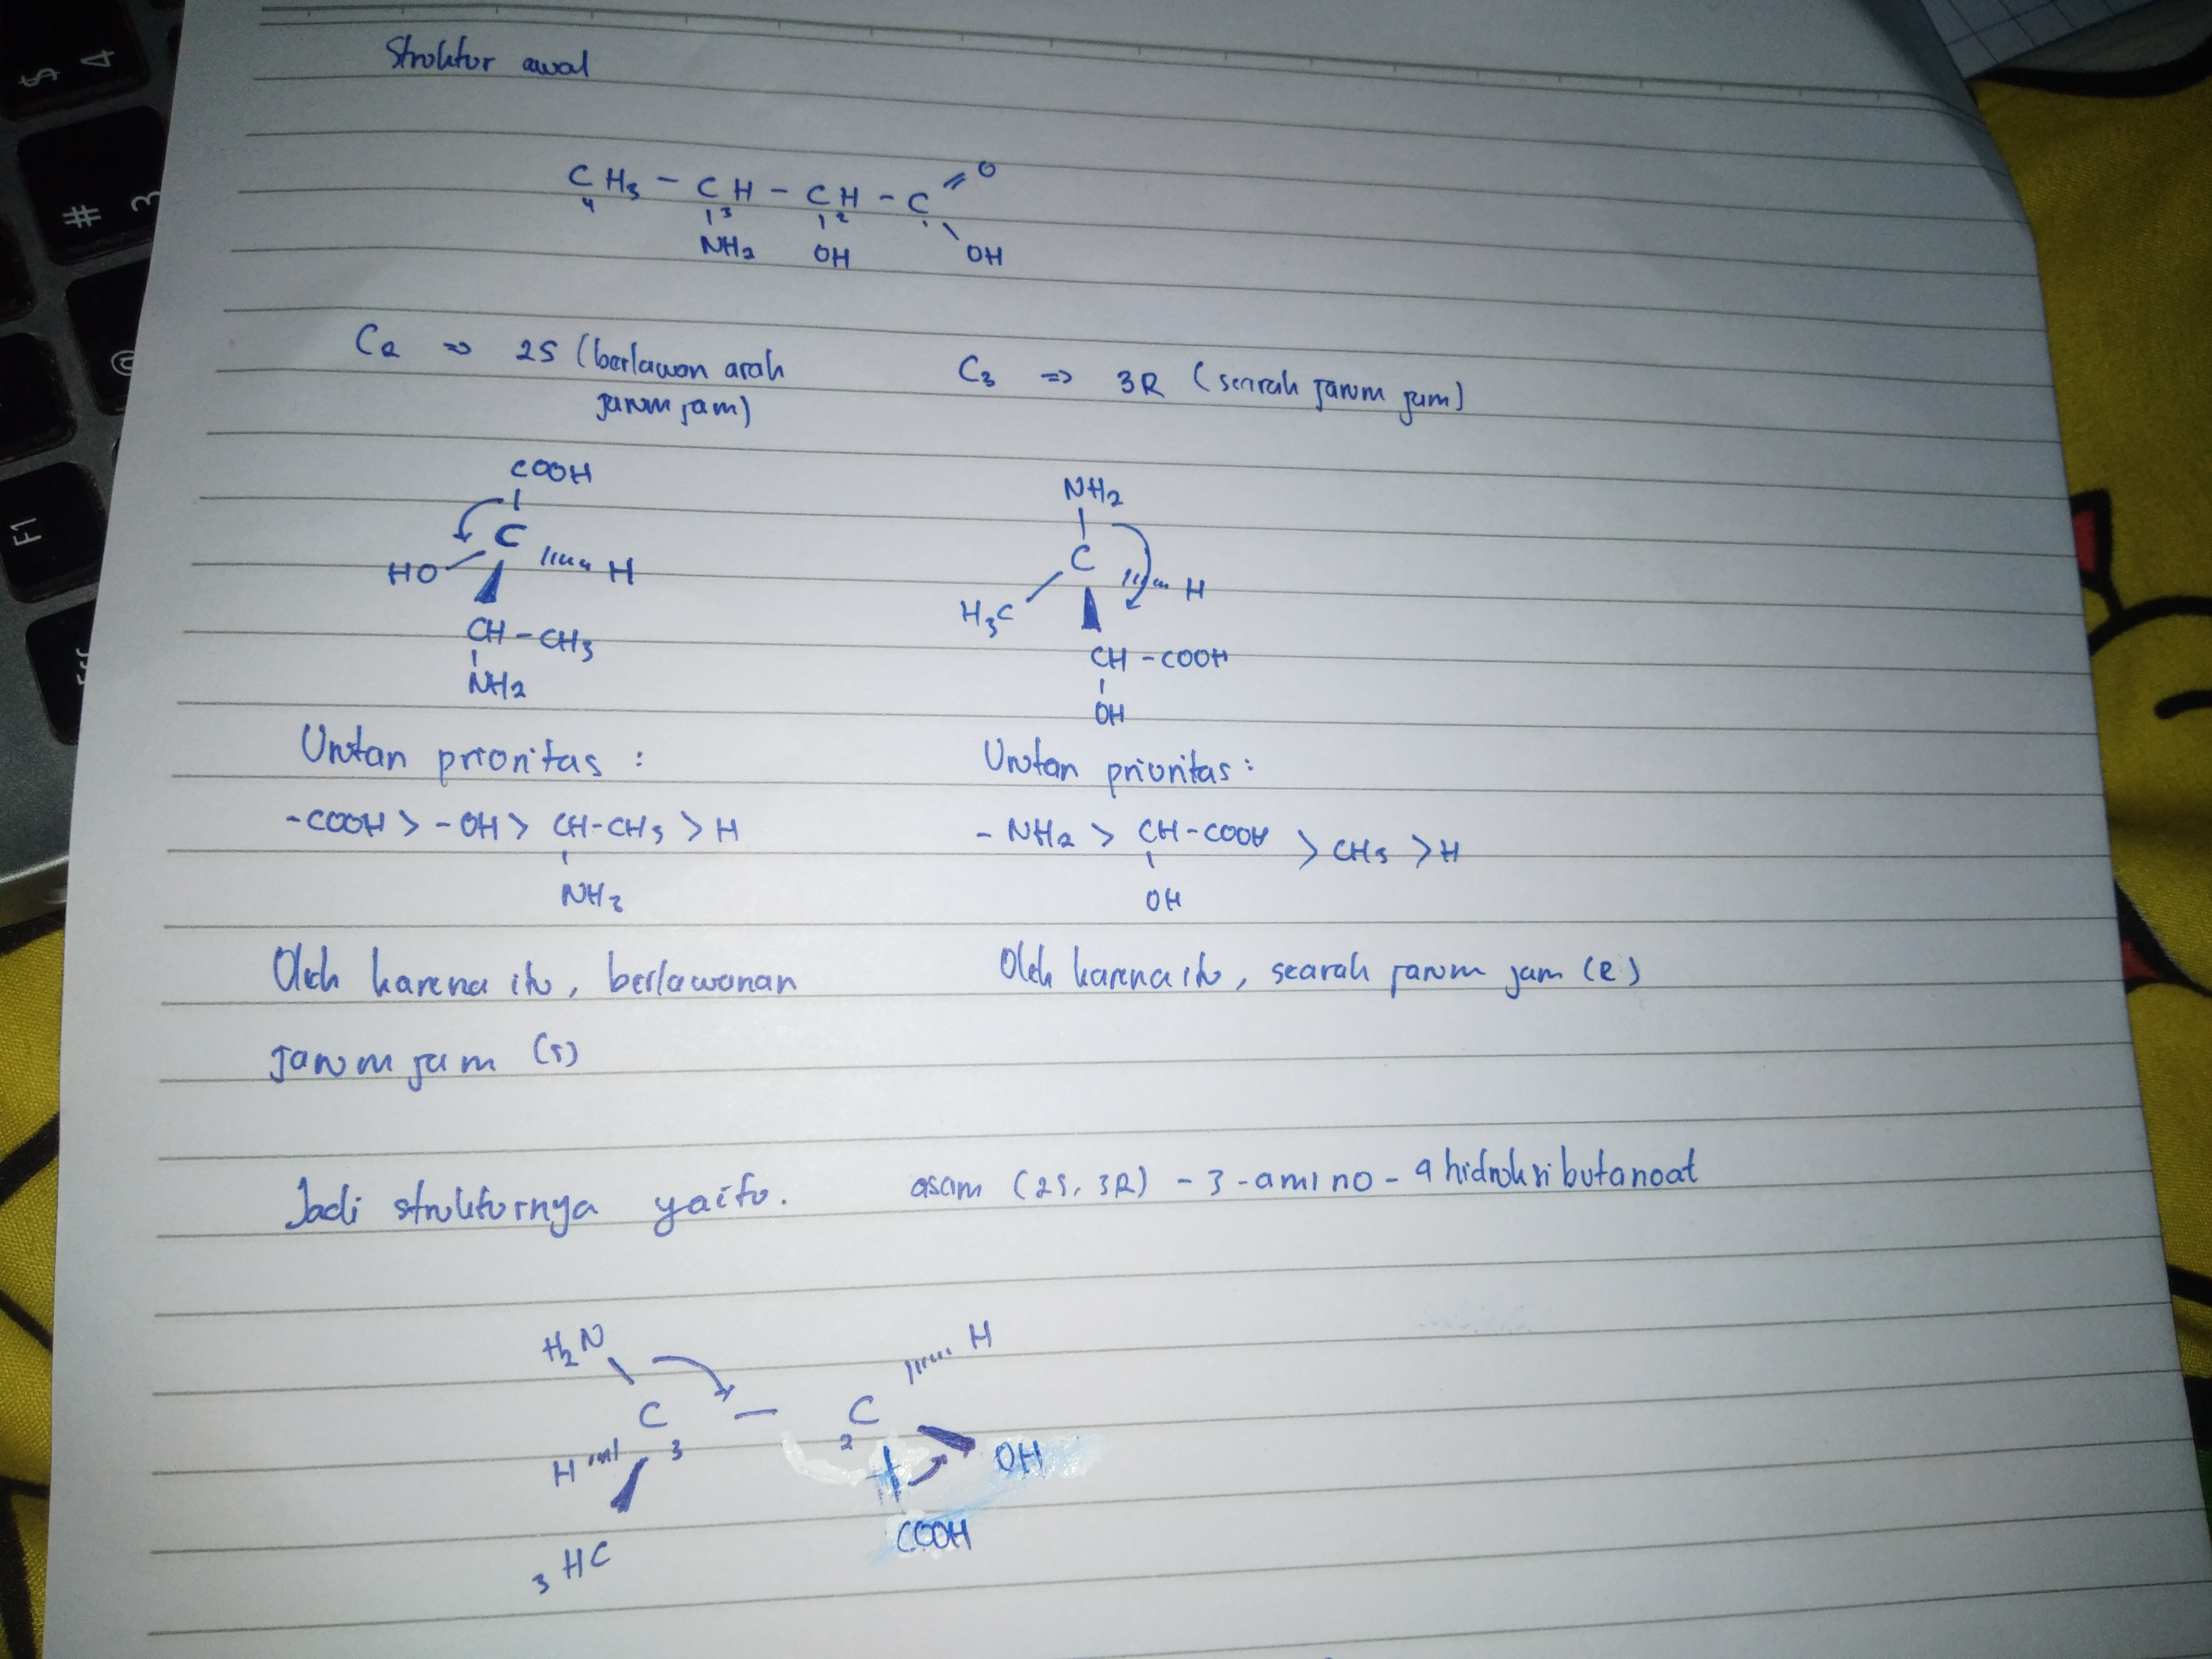 Struktur awal
CH3 - CH - CH - C = O
4 3 2
NH2 OH OH
C2 => 2S (berlawan arah
jarum jam)
C3 => 3R (searah jarum jam)
COOH
C
HO H
CH - CH3
NH2
NH2
C
H3C H
CH - COOH
OH
Urutan prioritas :
-COOH > -OH > CH-CH3 > H
NH2
Urutan prioritas :
- NH2 > CH-COOH > CH3 > H
OH
Oleh karena itu, berlawanan
jarum jam (S)
Oleh karena itu, searah jarum jam (R)
Jadi strukturnya yaitu. asam (2S, 3R) - 3 - amino - 4 hidroksi butanoat
H2N H
C - C
3 2
H OH
3HC COOH
$ 4
# 3
@
F1